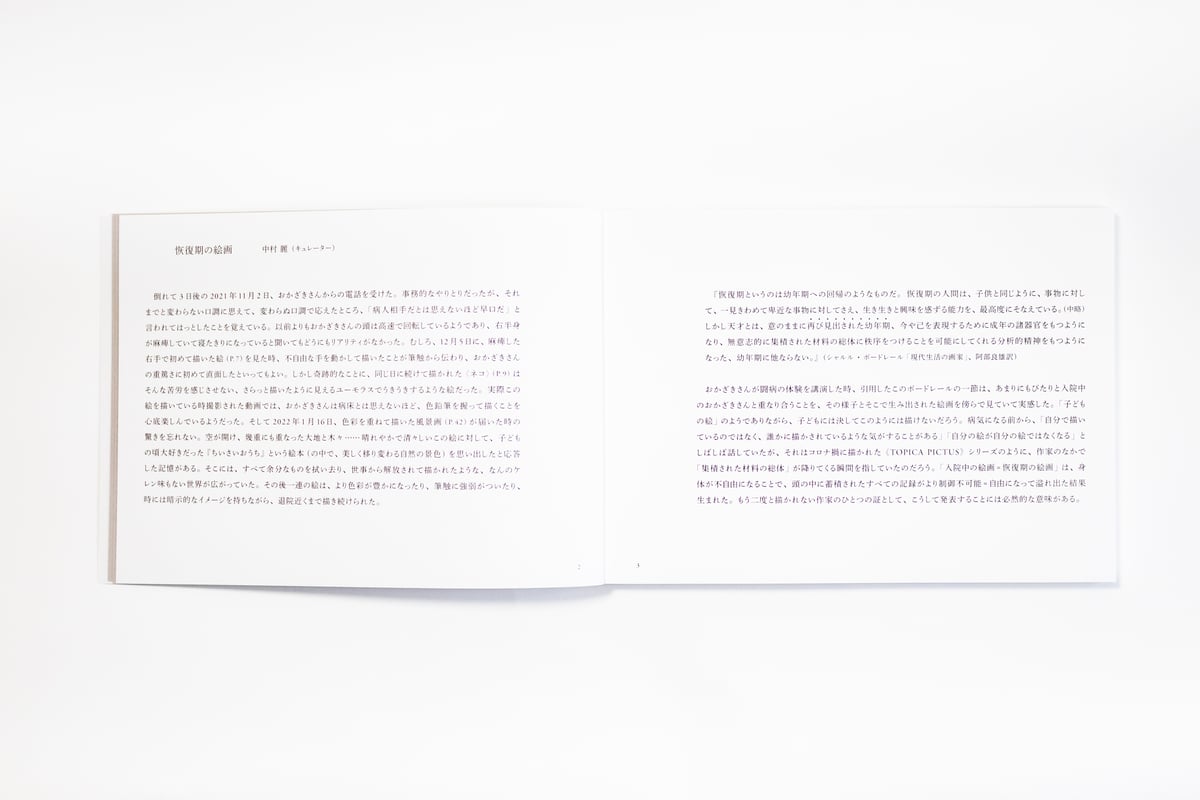 恢復期の絵画　中村 麗（キュレーター）
倒れて3日後の2021年11月2日、おかざきさんからの電話を受けた。事務的なやりとりだったが、それ
までと変わらない口調に思えて、変わらぬ口調で応えたところ、「病人相手だとは思えないほど早口だ」と
言われてはっとしたことを覚えている。以前よりもおかざきさんの頭は高速で回転しているようであり、右半身
が麻痺していて寝たきりになっていると聞いてもどうにもリアリティがなかった。むしろ、12月5日に、麻痺した
右手で初めて描いた絵（P.7）を見た時、不自由な手を動かして描いたことが筆触から伝わり、おかざきさん
の重篤さに初めて直面したといってもよい。しかし奇跡的なことに、同じ日に続けて描かれた〈ネコ〉（P.9）は
そんな苦労を感じさせない、さらっと描いたように見えるユーモラスでうきうきするような絵だった。実際この
絵を描いている時撮影された動画では、おかざきさんは病床とは思えないほど、色鉛筆を握って描くことを
心底楽しんでいるようだった。そして2022年1月16日、色彩を重ねて描いた風景画（P.42）が届いた時の
驚きを忘れない。空が開け、幾重にも重なった大地と木々……晴れやかで清々しいこの絵に対して、子ども
の頃大好きだった『ちいさいおうち』という絵本（の中で、美しく移り変わる自然の景色）を思い出したと応答
した記憶がある。そこには、すべて余分なものを拭い去り、世事から解放されて描かれたような、なんのケ
レン味もない世界が広がっていた。その後一連の絵は、より色彩が豊かになったり、筆触に強弱がついたり、
時には暗示的なイメージを持ちながら、退院近くまで描き続けられた。
2
『恢復期というのは幼年期への回帰のようなものだ。恢復期の人間は、子供と同じように、事物に対し
て、一見きわめて卑近な事物に対してさえ、生き生きと興味を感ずる能力を、最高度にそなえている。（中略）
しかし天才とは、意のままに再び見出された幼年期、今や己を表現するために成年の諸器官をもつように
なり、無意志的に集積された材料の総体に秩序をつけることを可能にしてくれる分析的精神をもつように
なった、幼年期に他ならない。』（シャルル・ボードレール「現代生活の画家」、阿部良雄訳）
おかざきさんが闘病の体験を講演した時、引用したこのボードレールの一節は、あまりにもぴたりと入院中
のおかざきさんと重なり合うことを、その様子とそこで生み出された絵画を傍らで見ていて実感した。「子ども
の絵」のようでありながら、子どもには決してこのようには描けないだろう。病気になる前から、「自分で描い
ているのではなく、誰かに描かされているような気がすることがある」「自分の絵が自分の絵ではなくなる」と
しばしば話していたが、それはコロナ禍に描かれた〈TOPICA PICTUS〉シリーズのように、作家のなかで
「集積された材料の総体」が降りてくる瞬間を指していたのだろう。「入院中の絵画＝恢復期の絵画」は、身
体が不自由になることで、頭の中に蓄積されたすべての記録がより制御不可能＝自由になって溢れ出た結果
生まれた。もう二度と描かれない作家のひとつの証として、こうして発表することには必然的な意味がある。
3